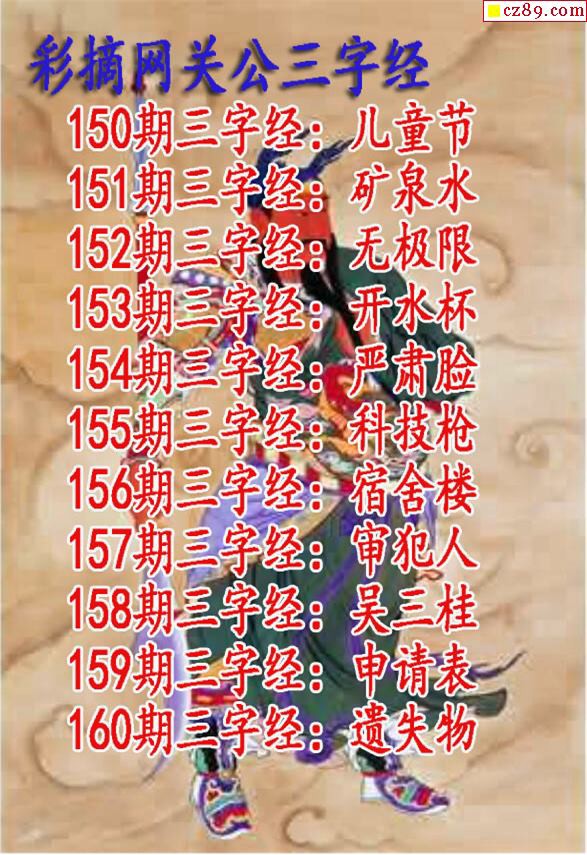 cz89.com
彩摘网关公三字经
150期三字经：儿童节
151期三字经：矿泉水
152期三字经：无极限
153期三字经：开水杯
154期三字经：严肃脸
155期三字经：科技枪
156期三字经：宿舍楼
157期三字经：审犯人
158期三字经：吴三桂
159期三字经：申请表
160期三字经：遗失物